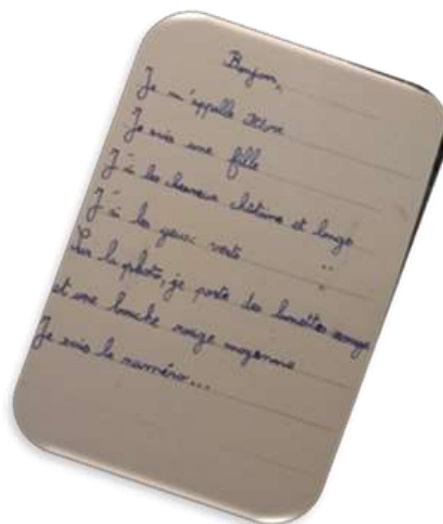 Bonjour,
Je m'appelle
Je suis une fille
J'ai les cheveux châtains et longs
J'ai les yeux verts
Sur la photo, je porte des lunettes rouge
et une bouche rouge moyenne
Je suis le numéro...